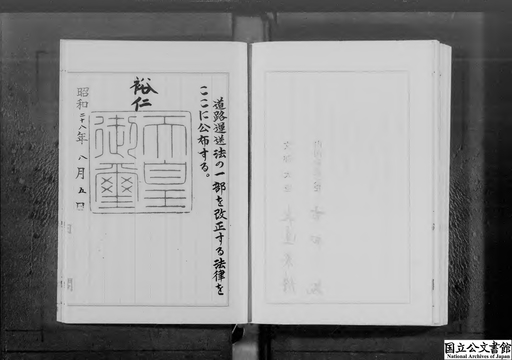 道路運送法の一部を改正する法律を
ここに公布する。
裕仁
天皇
御璽
昭和二十八年八月五日
国立公文書館
National Archives of Japan